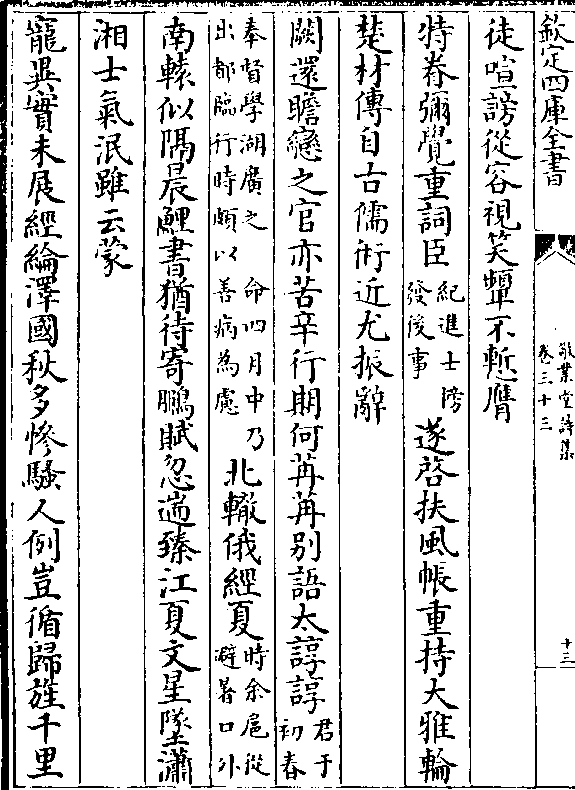 欽定四庫全書
敬業堂詩集
卷三十三
十三
徒喧謗從容視笑顰不慙膺
特眷彌覺重詞臣紀進士謗
發後事遂啓扶風帳重持大雅輪
楚材傳自古儒術近尤振辭
闕還瞻戀之官亦苦辛行期何苒苒别語太諄諄君于
初春
奉督學湖廣之命四月中乃
出都臨行時頗以善病為慮北轍俄經夏時余扈從
避暑口外
南轅似隔晨鯉書猶待寄鵩賦忽遄臻江夏文星墜瀟
湘士氣泯雖云蒙
寵異實未展經綸澤國秋多慘騷人例豈循歸旌千里